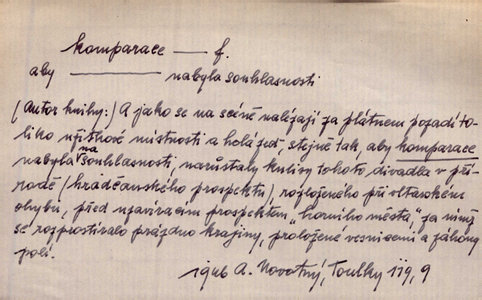 komparace — f.
aby ——— nabyla souhlasnosti
(Autor knihy:) A jako se na scéně nalézají za plátnem pozadí to-
liko užitkové místnosti a holá zeď - stejně tak, aby komparace
nabyla na souhlasnosti, narůstaly kulisy tohoto divadla v pří-
rodě (hradčanského prospektu), rozloženého při vltavském
ohybu, před uzavíracím prospektem „horního města", za nímž
se rozprostíralo prázdno krajiny, proložené vesnicemi a záhony
polí.
1946 A. Novotný, Toulky 119, 9